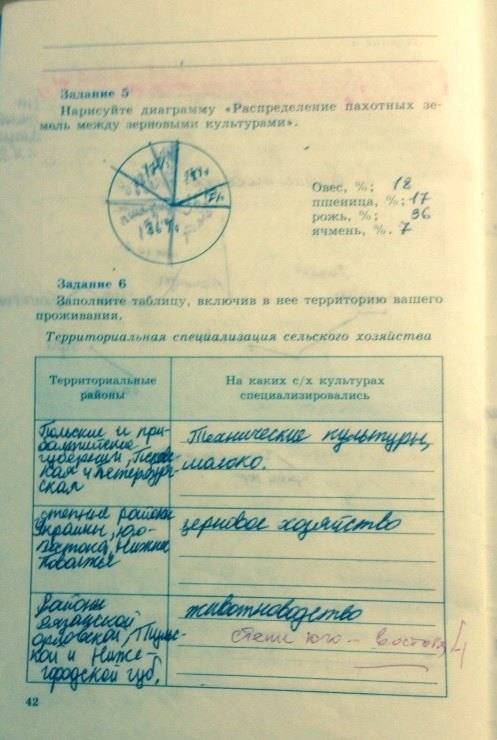 Задание 5
Нарисуйте диаграмму «Распределение пахотных зе-
мель между зерновыми культурами».
17%
18%
7%
36%
Овес, %; 18
пшеница, %; 17
рожь, %; 36
ячмень, %. 7
Задание 6
Заполните таблицу, включив в нее территорию вашего
проживания.
Территориальная специализация сельского хозяйства
Территориальные
районы
На каких с/х культурах
специализировались
Польские и при-
балтийские
губернии, Псков-
ская и Петербург-
ская
Технические культуры,
молоко.
степные районы
Украины, юго-
востока, Нижнее
Поволжье
зерновое хозяйство
Районы
Орловской, Туль-
ской и Ниже-
городской губ.
животноводство
степи юго-востока 4
42